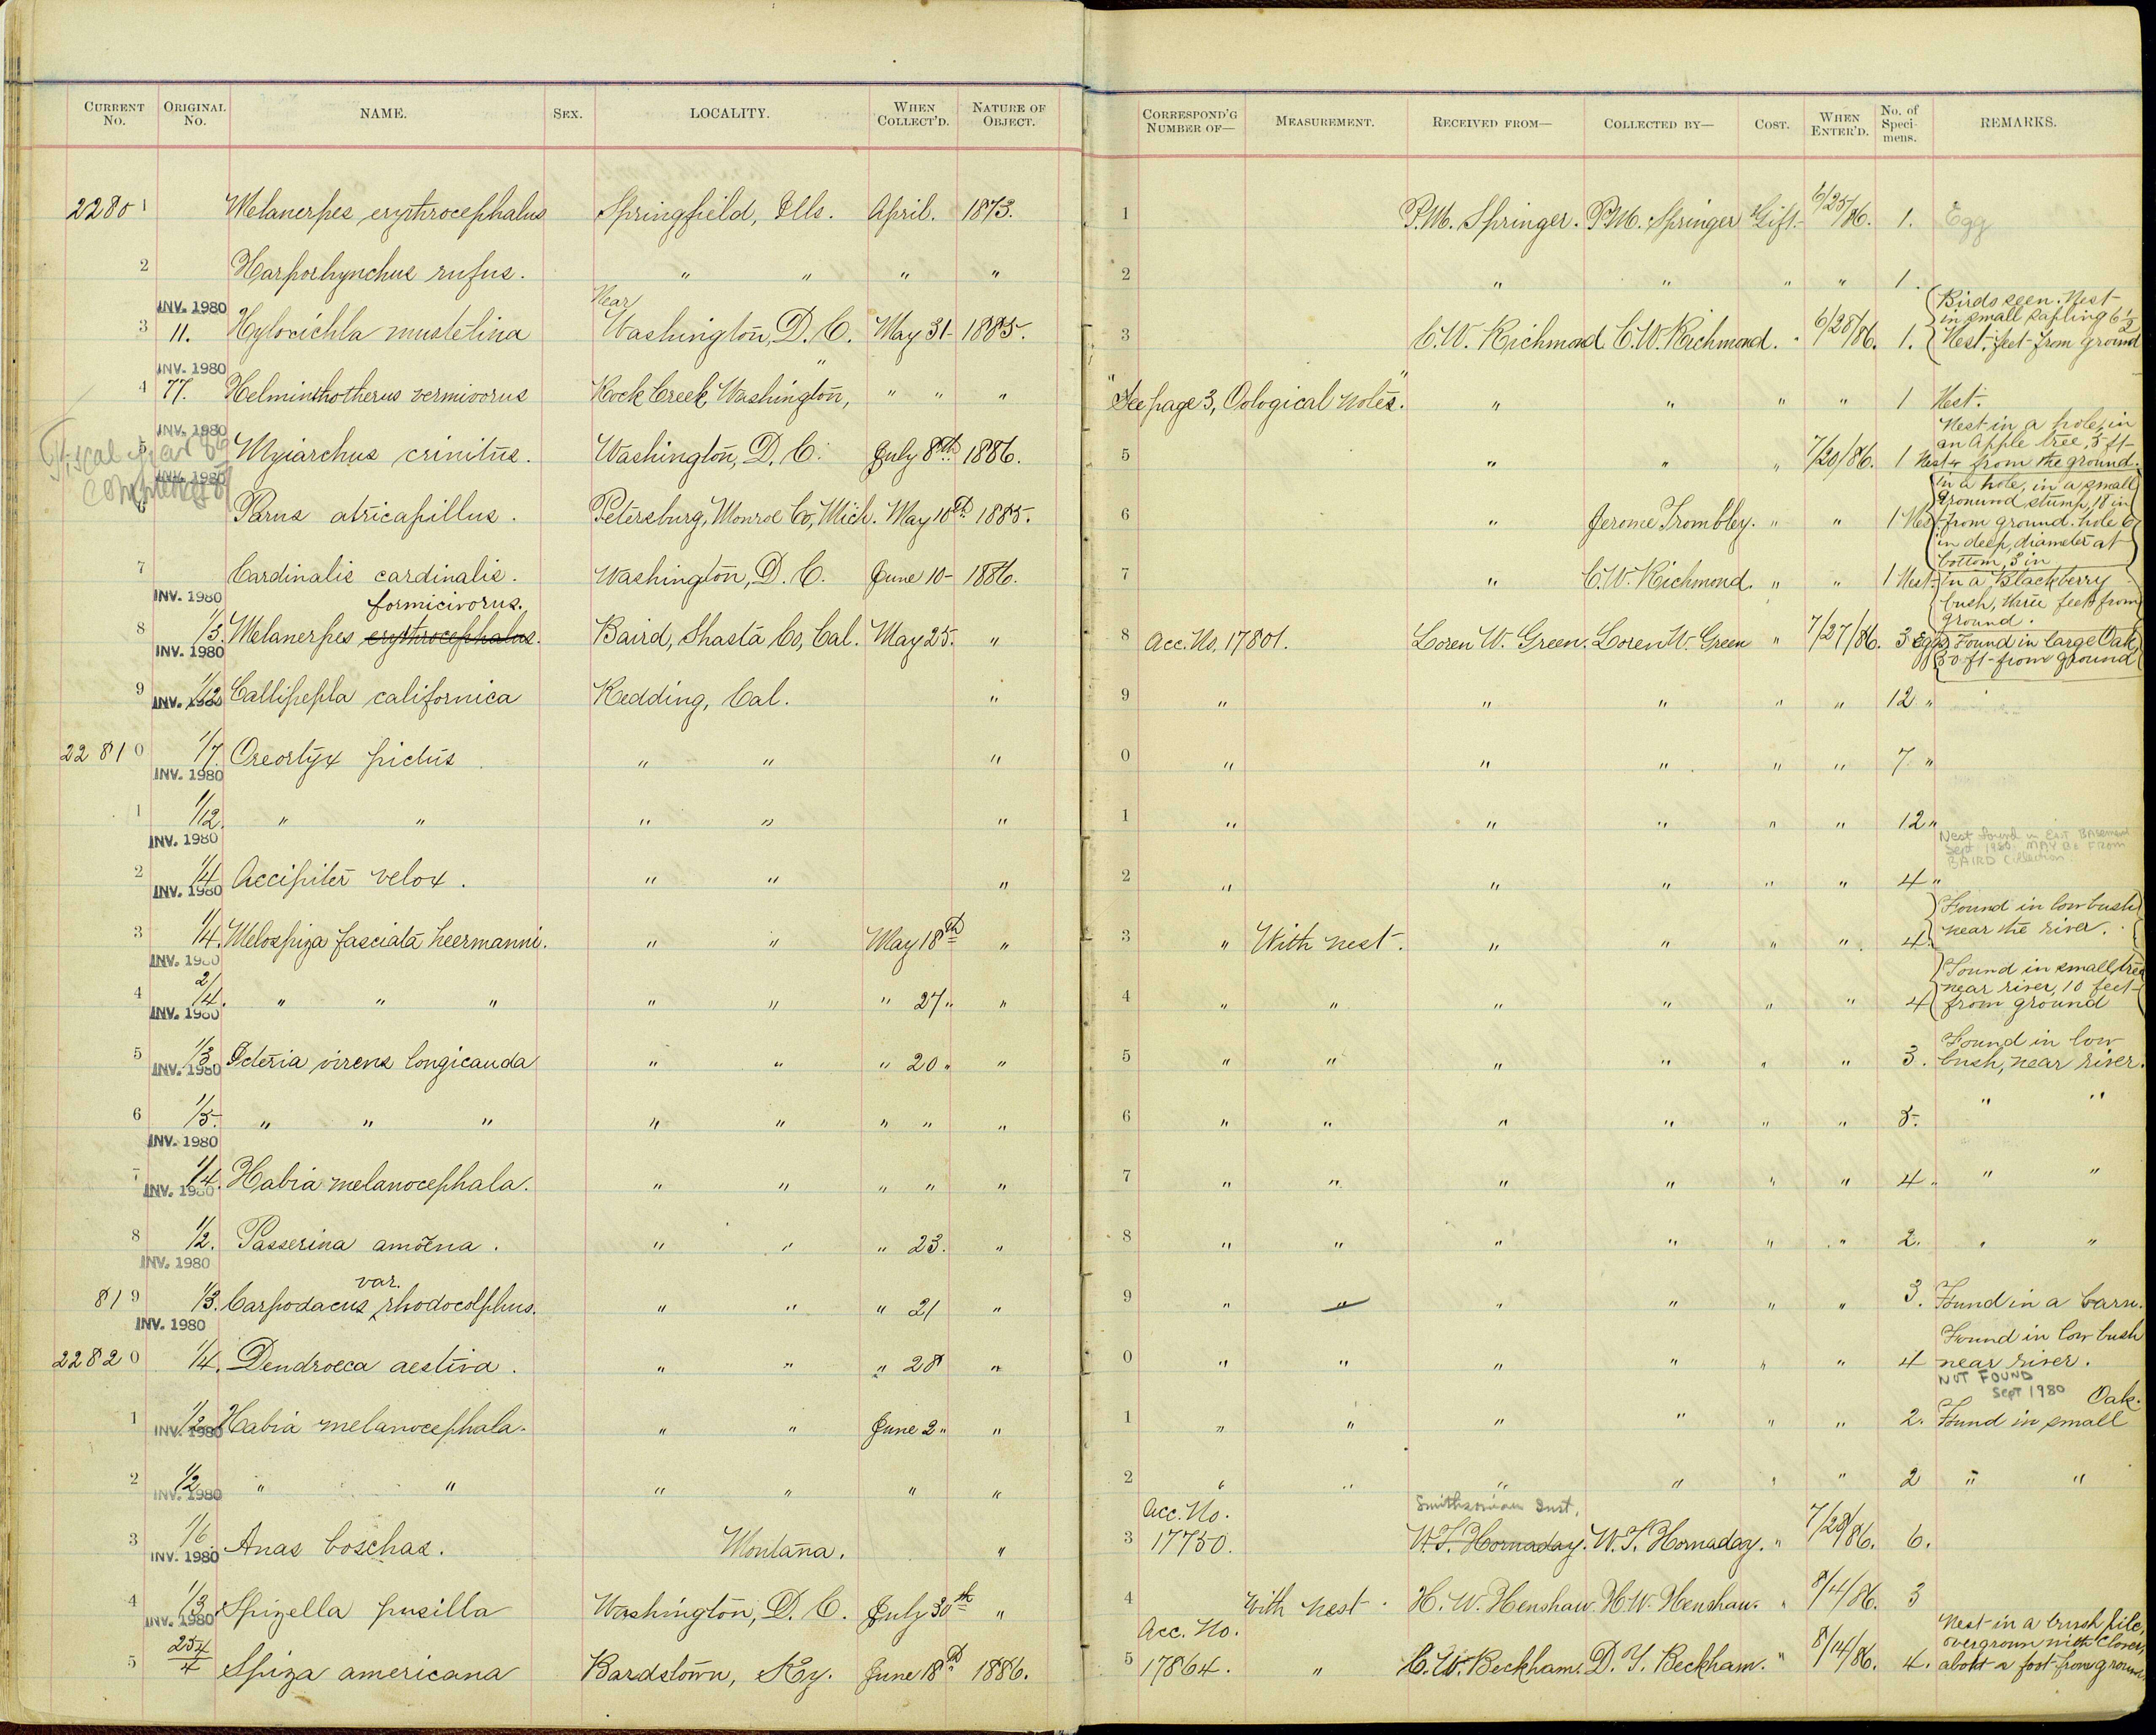 CURRENT No. ORIGINAL No. NAME. SEX. LOCALITY. WHEN COLLECT'D. NATURE OF OBJECT. CORRESPOND'G NUMBER OF— MEASUREMENT. RECEIVED FROM— COLLECTED BY— COST. WHEN ENTER'D. No. of Specimens. REMARKS.
22801 Melanerpes erythrocephalus Springfield, Ills. April. 1873. 1 P.M. Springer. P.M. Springer Gift. 6/25/86. 1. Egg
2 Harporhynchus rufus. " " " " 2 " " " " 1.
INV. 1980 Near Birds seen. Nest
in small sapling 6 1/2
3 11. Hylocichla mustelina Washington, D.C. May 31 1885. 3 C.W. Richmond. C.W. Richmond. " 6/28/86. 1. Nest. feet from ground
INV. 1980
4 77. Helminthotherus vermivorus Rock Creek, Washington, " " " " "See page 3, Oological Notes." " " " " 1 Nest.
INV. 1980 Nest in a hole, in
an Apple tree, 5 ft
Fiscal year 86 5 Myiarchus crinitus. Washington, D.C. July 8th 1886. 5 " " " 7/20/86. 1 Nest from the ground.
commences INV. 1980
In a hole, in a small
stump, 18 in
6 Parus atricapillus. Petersburg, Monroe Co, Mich. May 10th 1885. 6 " Jerome Trombley. " " 1 Nest from ground. hole 6
in deep, diameter at
bottom, 3 in
7 Cardinalis cardinalis. Washington, D.C. June 10 1886. 7 " C.W. Richmond. " " 1 Nest in a Blackberry
INV. 1980 formicivorus. bush, three feet from
ground.
8 1/3 Melanerpes erythrocephalus. Baird, Shasta Co, Cal. May 25. " 8 Acc. No. 17801. Loren W. Green. Loren W. Green " 7/27/86. 3 Eggs Found in large Oak,
INV. 1980 30 ft from ground
9 1/12 Callipepla californica Redding, Cal. " 9 " " " " " 12 "
INV. 1980
22810 1/7. Oreortyx pictus " " " 0 " " " " " 7 "
INV. 1980
1 1/12. " " " " " 1 " " " " " 12 "
INV. 1980 Nest found in EAST BASEMENT
Sept 1980 MAY BE FROM
BAIRD Collection.
2 1/4 Accipiter velox. " " " 2 " " " " " 4 "
INV. 1980
Found in low bush
3 1/4. Melospiza fasciata heermanni. " " May 18th " 3 " With nest. " " " " 4 near the river.
INV. 1980
Found in small tree
near river, 10 feet
4 2/4. " " " " " " 27 " " 4 " " " " " " 4 from ground
INV. 1980
Found in low
5 1/3 Icteria virens longicauda " " " 20 " " 5 " " " " " " 3. bush, near river.
INV. 1980
6 1/5. " " " " " " " " 6 " " " " " " 5. " "
INV. 1980
7 1/4. Habia melanocephala. " " " " " 7 " " " " " " 4 " " "
INV. 1980
8 1/2. Passerina amoena. " " " 23. " 8 " " " " " " 2. " "
INV. 1980
var.
819 1/3. Carpodacus rhodocolphus. " " " 21 " 9 " " " " " " 3. Found in a barn.
INV. 1980
Found in low bush
22820 1/4. Dendroeca aestiva. " " " 28 " 0 " " " " " " 4 near river.
NOT FOUND
Sept 1980
Oak.
1 1/2 Habia melanocephala. " " June 2 " " 1 " " " " " " 2. Found in small
INV. 1980
2 1/2 " " " " " " 2 " " " " " " 2 " "
INV. 1980
Acc. No. Smithsonian Inst.
3 1/6. Anas boschas. Montana. " 3 17750. W.T. Hornaday. W.T. Hornaday. " 7/29/86. 6.
INV. 1980
4 1/3 Spizella pusilla Washington, D.C. July 30th " 4 With nest. H.W. Henshaw H.W. Henshaw. " 8/4/86. 3
INV. 1980
Acc. No. Nest in a brush pile,
overgrown with clover,
5 254/4 Spiza americana Bardstown, Ky. June 18th 1886. 5 17864. " C.W. Beckham. D.Y. Beckham. " 8/14/86. 4. about a foot from ground